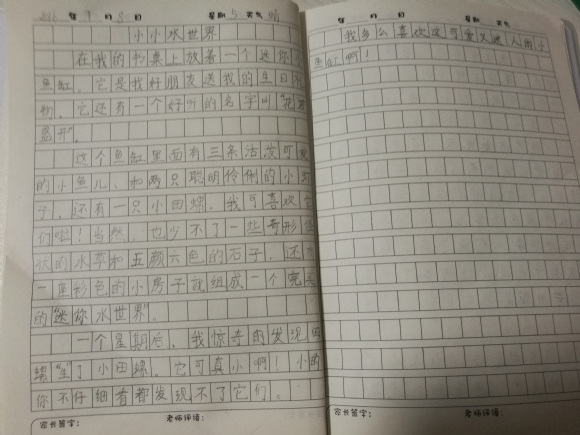 年 9 月 5 日 星期 5 天气 晴
小小水世界
在我的书桌上放着一个迷你
鱼缸，它是我好朋友送我的生日
物，它还有一个好听的名字叫“花
盛开”。
这个鱼缸里面有三条活泼可
的小鱼儿、和两只聪明伶俐的小
子，还有一只小田螺，我可喜欢
们啦！当然，也少不了一些奇形
状的水草和五颜六色的石子，还
一座彩色的小房子就组成一个完美
的“迷你水世界”。
一个星期后，我惊奇的发现田
螺“生”了小田螺，它可真小啊！小的
你不仔细看都发现不了它们。
家长签字： 老师评语：
年 月 日 星期 天气
我多么喜欢这可爱又迷人的小
鱼缸啊！
家长签字： 老师评语：